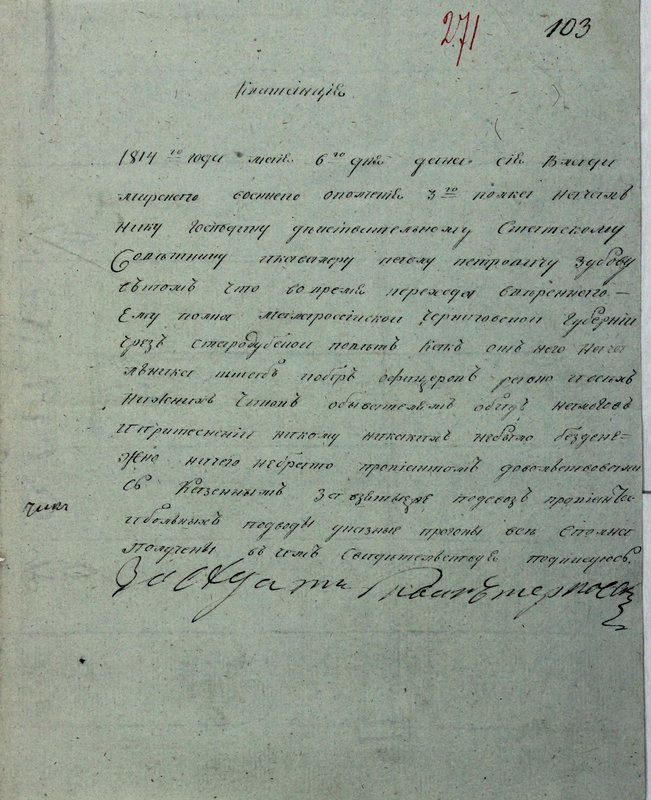 271 103
Квитанцiя
1814 го года маiя 6 го дня дана сiя Влади
мирскаго военнаго ополченiя 3 го полка началь
нику Господину дѣйствительному Статскому
Совѣтнику икавалеру петровичу Зубову
вътомъ что во время перехода ввѣреннаго
Ему полка малороссiйской Черниговской Губернiи
чрезъ стародубской поветъ Какъ отъ него Нача
льника иоберъ офицеровъ равно ивсехъ
Нижнихъ Чиновъ обывателямъ обидъ налоговъ
ипритеснений никому никакихъ небыло бездене-
жно ничего небрато провiантомъ довольствовались
Казеннымъ За взятыя подвозъ провiанта
ибольныхъ подводы указныя прогоны все Сполна
Получены въчемъ Свидетельствуя подписуюсь